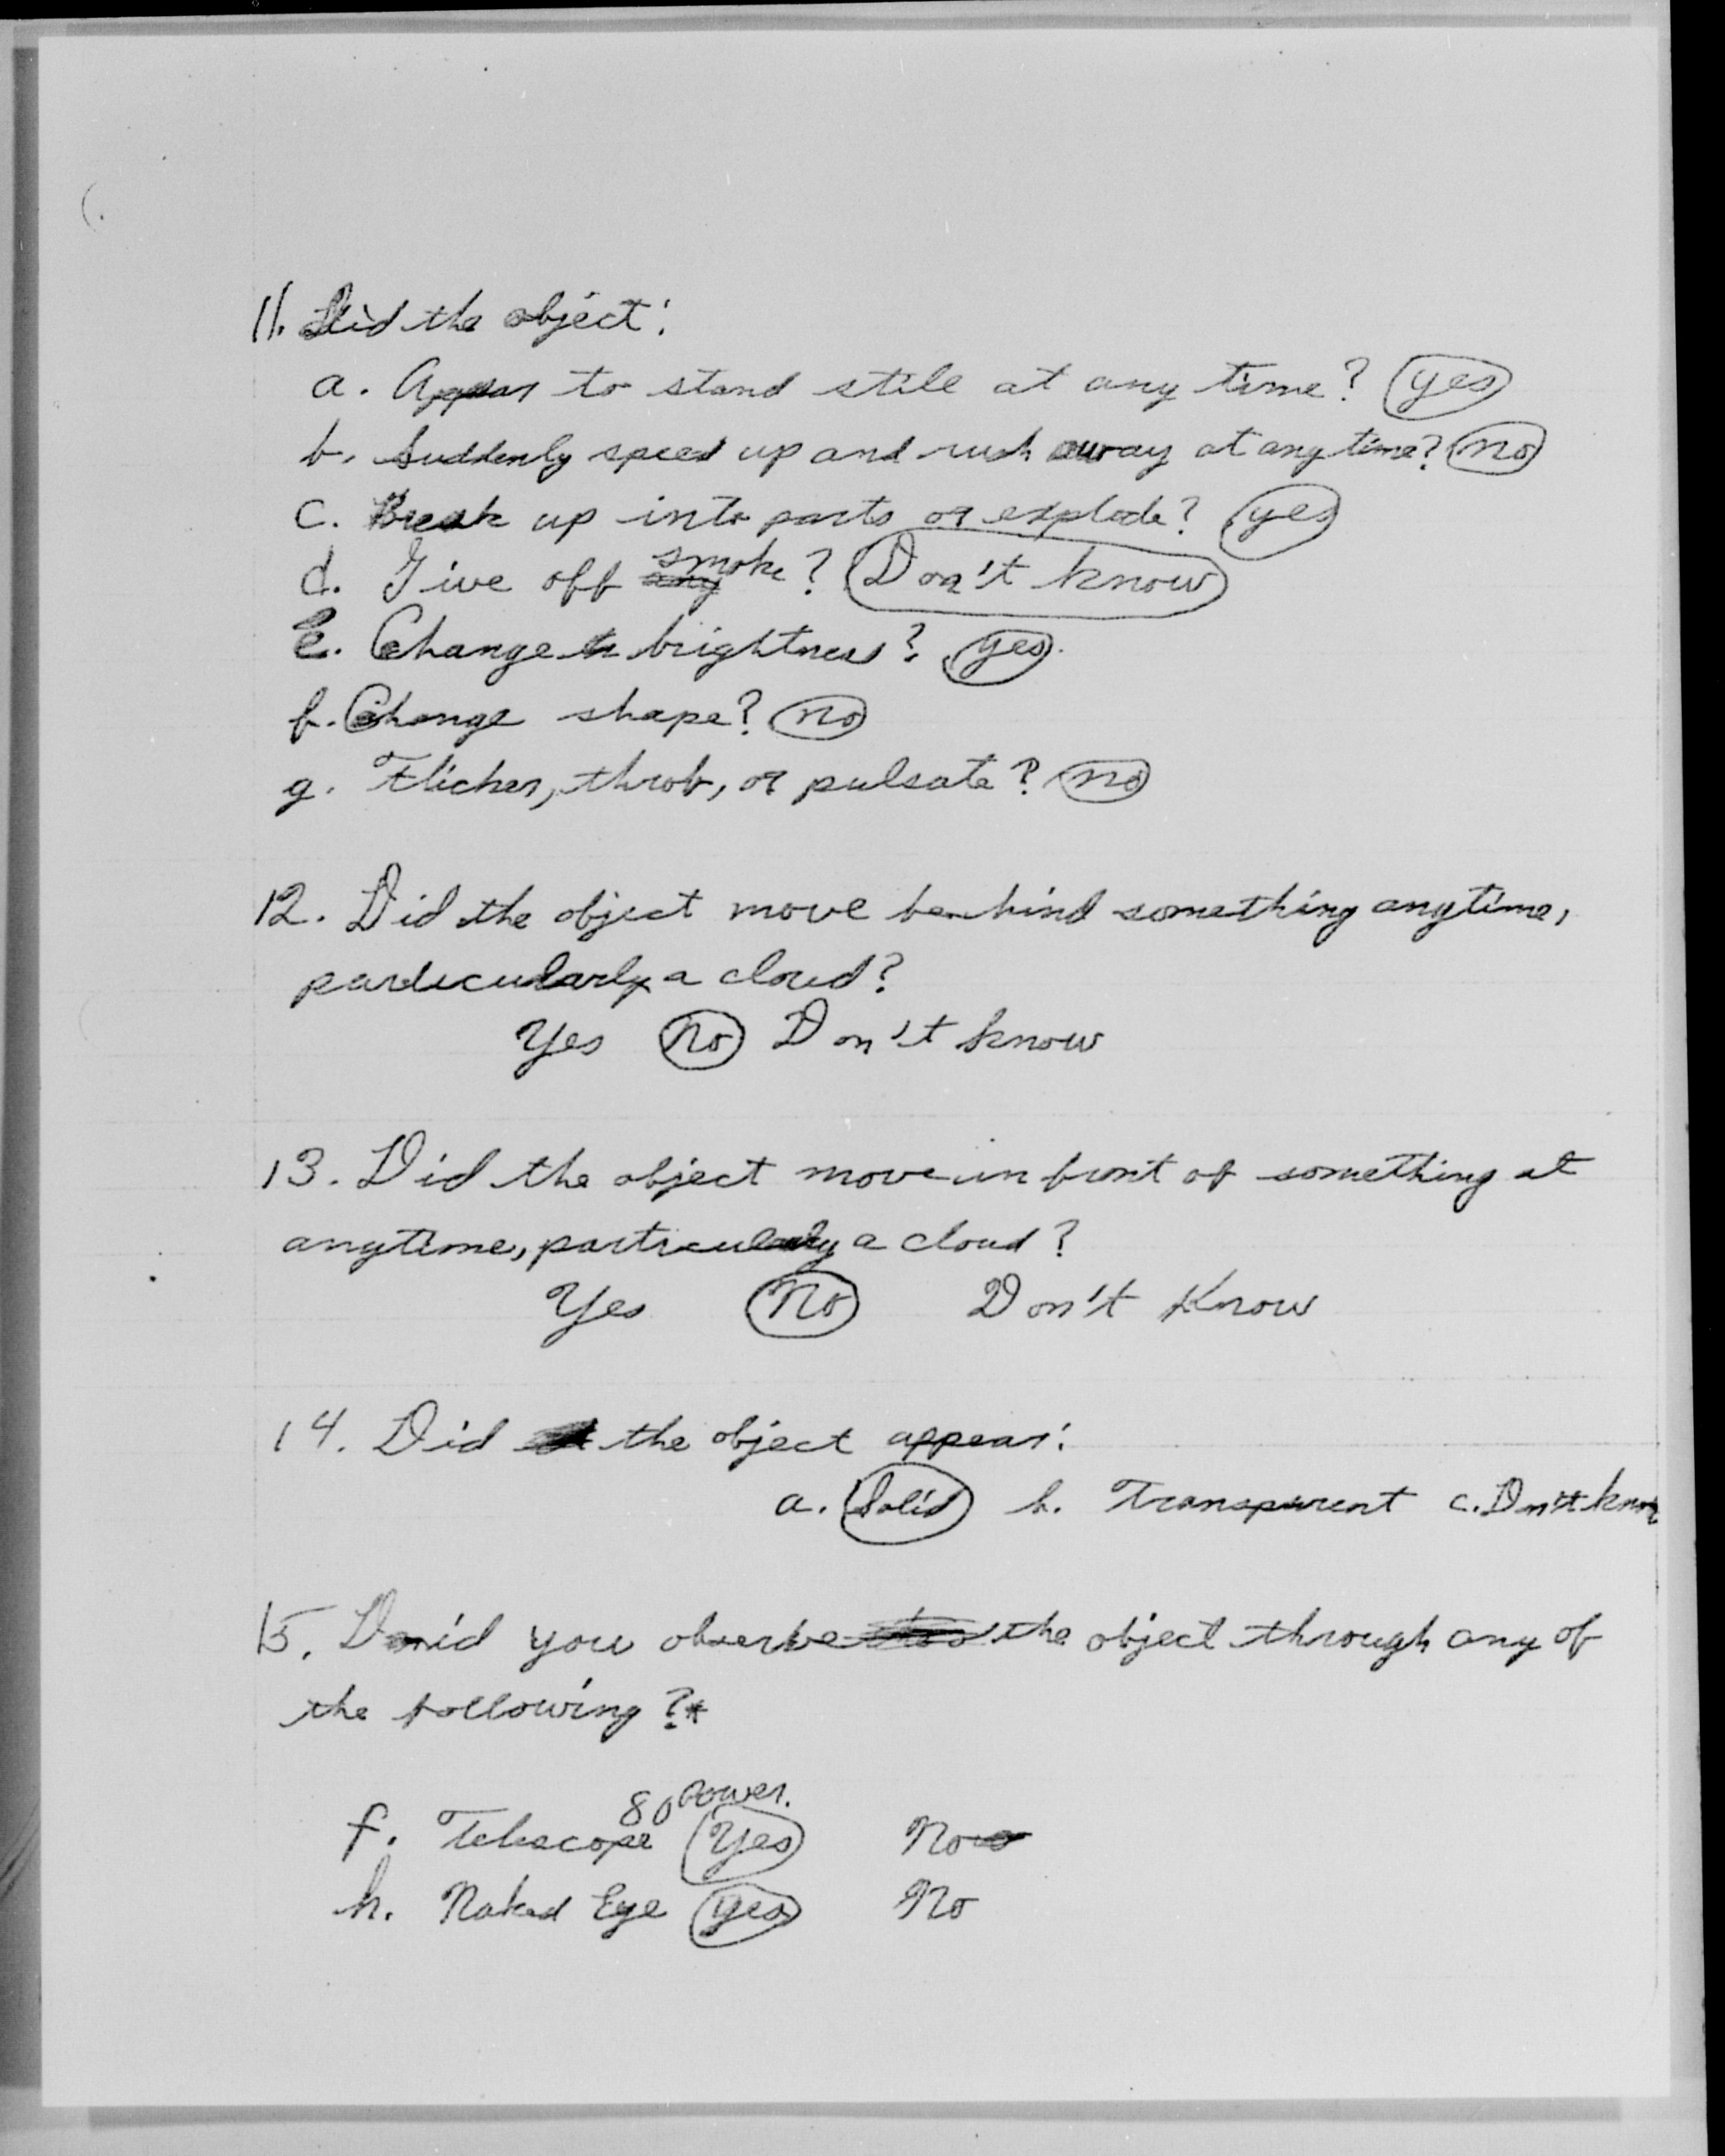 11. Did the object:
a. Appear to stand still at any time? yes
b. Suddenly speed up and rush away at any time? no
c. Break up into parts or explode? yes
d. Give off smoke? Don't know
e. Change brightness? yes.
f. Change shape? no
g. Flicker, throb, or pulsate? no
12. Did the object move behind something anytime,
particularly a cloud?
Yes No Don't know
13. Did the object move in front of something at
anytime, particularly a cloud?
Yes No Don't Know
14. Did the object appear:
a. Solid b. Transparent c. Don't know
15. Did you observe the object through any of
the following?*
80 Power.
f. Telescope Yes No
h. Naked Eye yes No